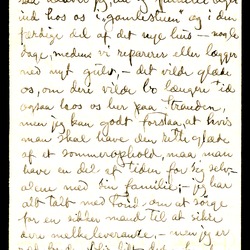 ind hos os i gamlestuen og i den
færdige del af det nye huis — nogle
dage, medens vi reparerer eller lægger
ned nyt gulv, — det vilde glæde
os, om dere vilde bo længere tid
ogsaa hos os her paa Stranden,
men jeg kan godt forstaa, at hvis
man skal have den rette glæde
af et sommerophold, maa man
have en del af tiden for sig selv
alene med sin familie; — jeg har
alt talt med Tord, om at sørge
for en sikker mand til at sikre
dere melkeleverance, — men jeg er